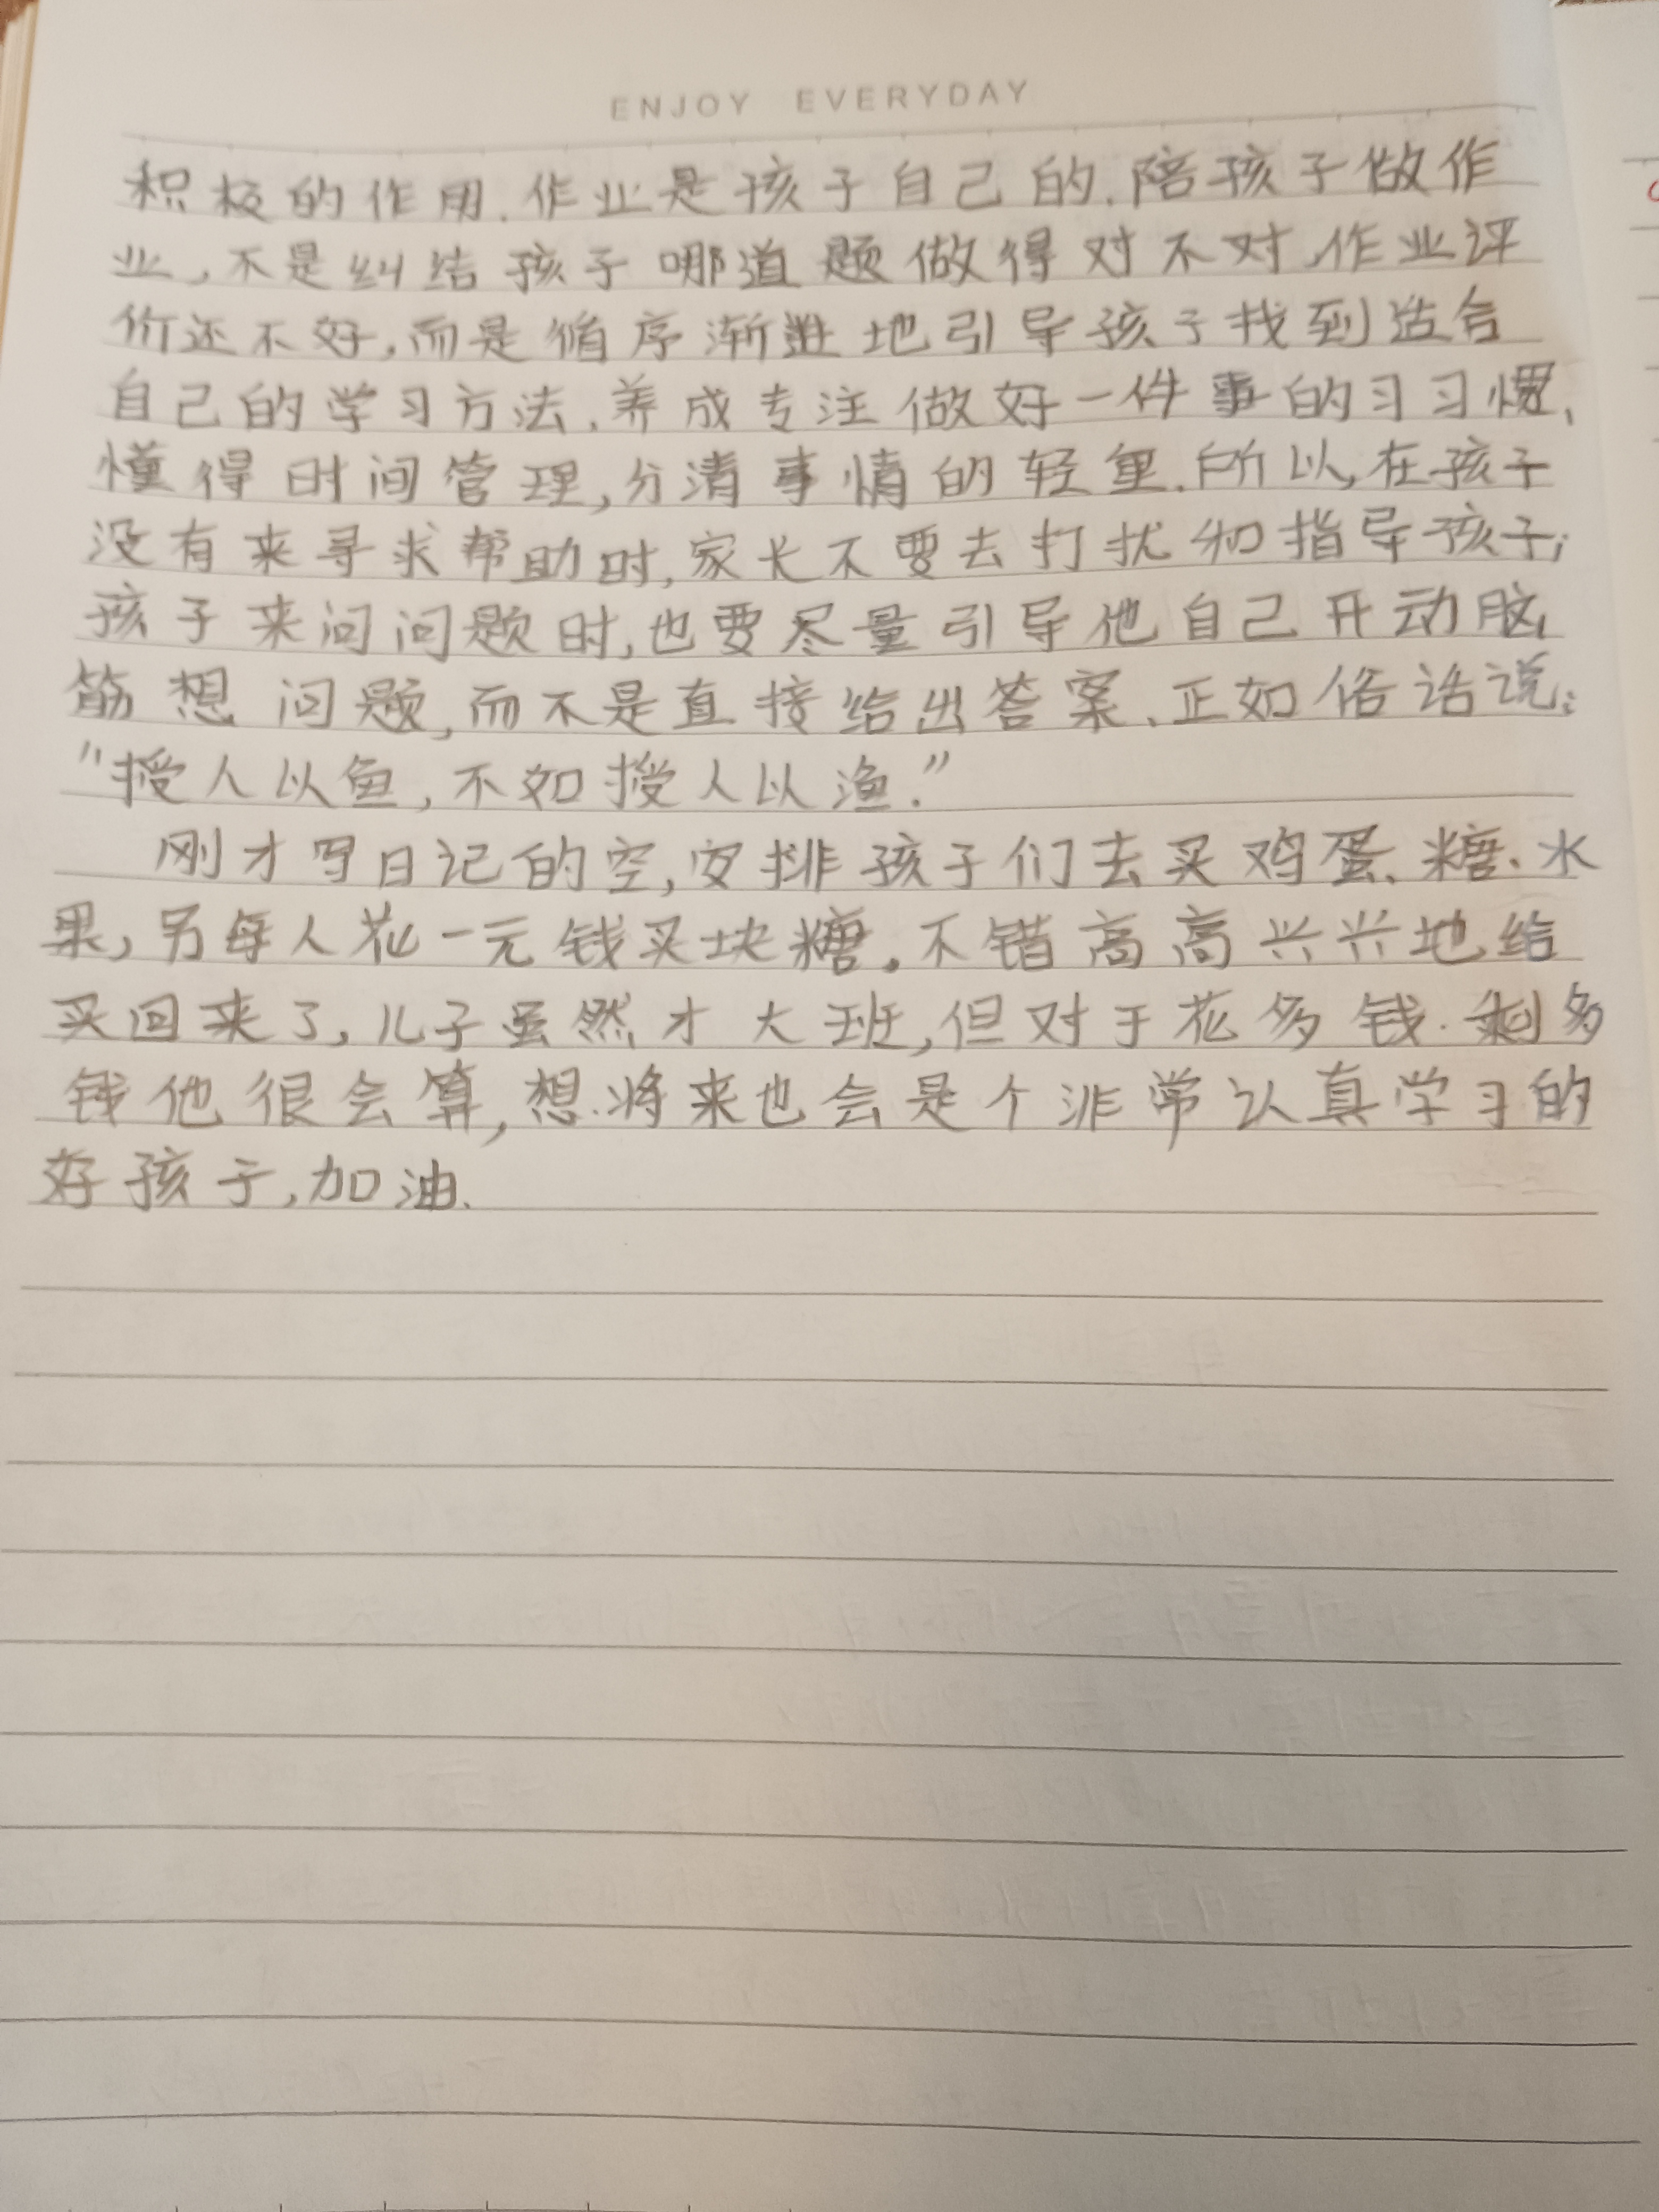 ENJOY EVERYDAY
积极的作用.作业是孩子自己的.陪孩子做作
业,不是纠结孩子哪道题做得对不对,作业评
价还不好,而是循序渐进地引导孩子找到适合
自己的学习方法.养成专注做好一件事的习习惯、
懂得时间管理,分清事情的轻重.所以,在孩子
没有来寻求帮助时,家长不要去打扰和指导孩子;
孩子来问问题时,也要尽量引导他自己开动脑
筋想问题,而不是直接给出答案.正如俗话说:
"授人以鱼,不如授人以渔."
刚才写日记的空,安排孩子们去买鸡蛋、糖、水
果,另每人花一元钱买块糖。不错高高兴兴地给
买回来了,儿子虽然才大班,但对于花多钱.剩多
钱他很会算,想.将来也会是个非常认真学习的
好孩子,加油.